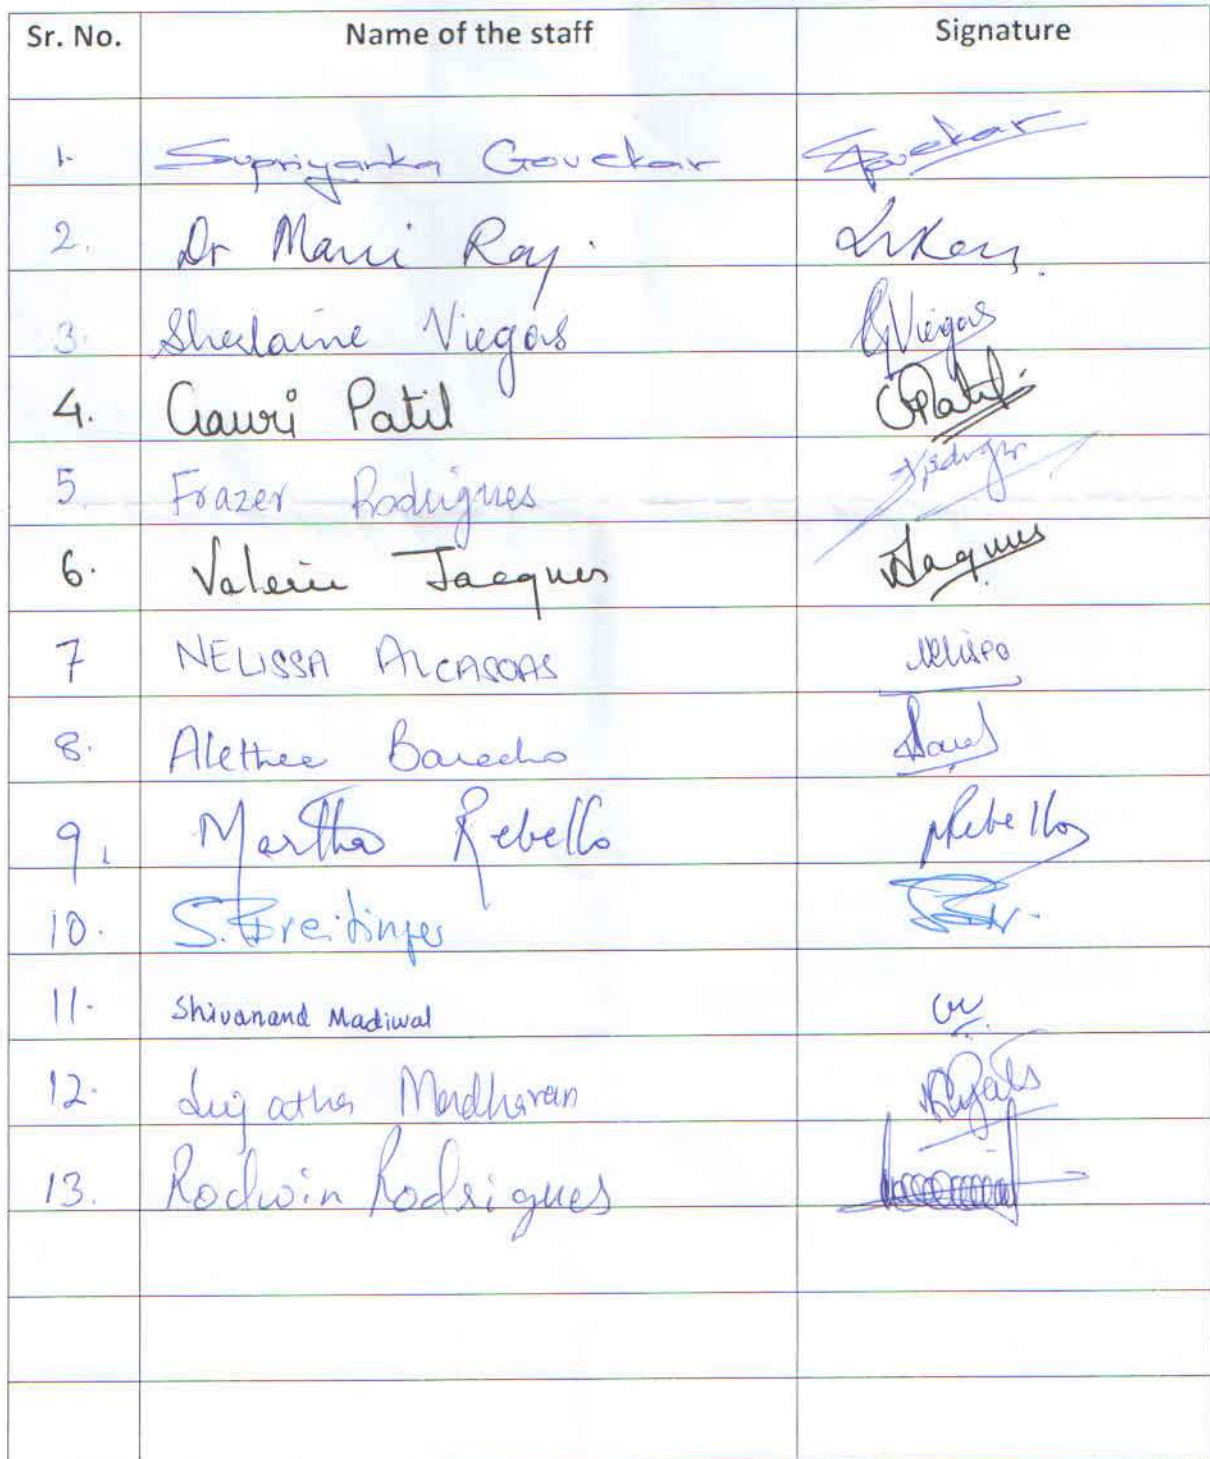 Sr. No. Name of the staff Signature
1. Supriyanka Govekar Govekar
2. Dr Raj.
3. Viegas Viegas
4. Gauri Patil GPatil
5. Frazer Rodrigues
6. Valerie Jacques Jacques
7 NELISSA ALCASOAS Nelissa
8. Alethea Barecho
9. Martha Rebello MRebello
10. S. Breitinger
11. Shivanand Madiwal
12. Sujatha Madhavan
13. Rodwin Rodrigues